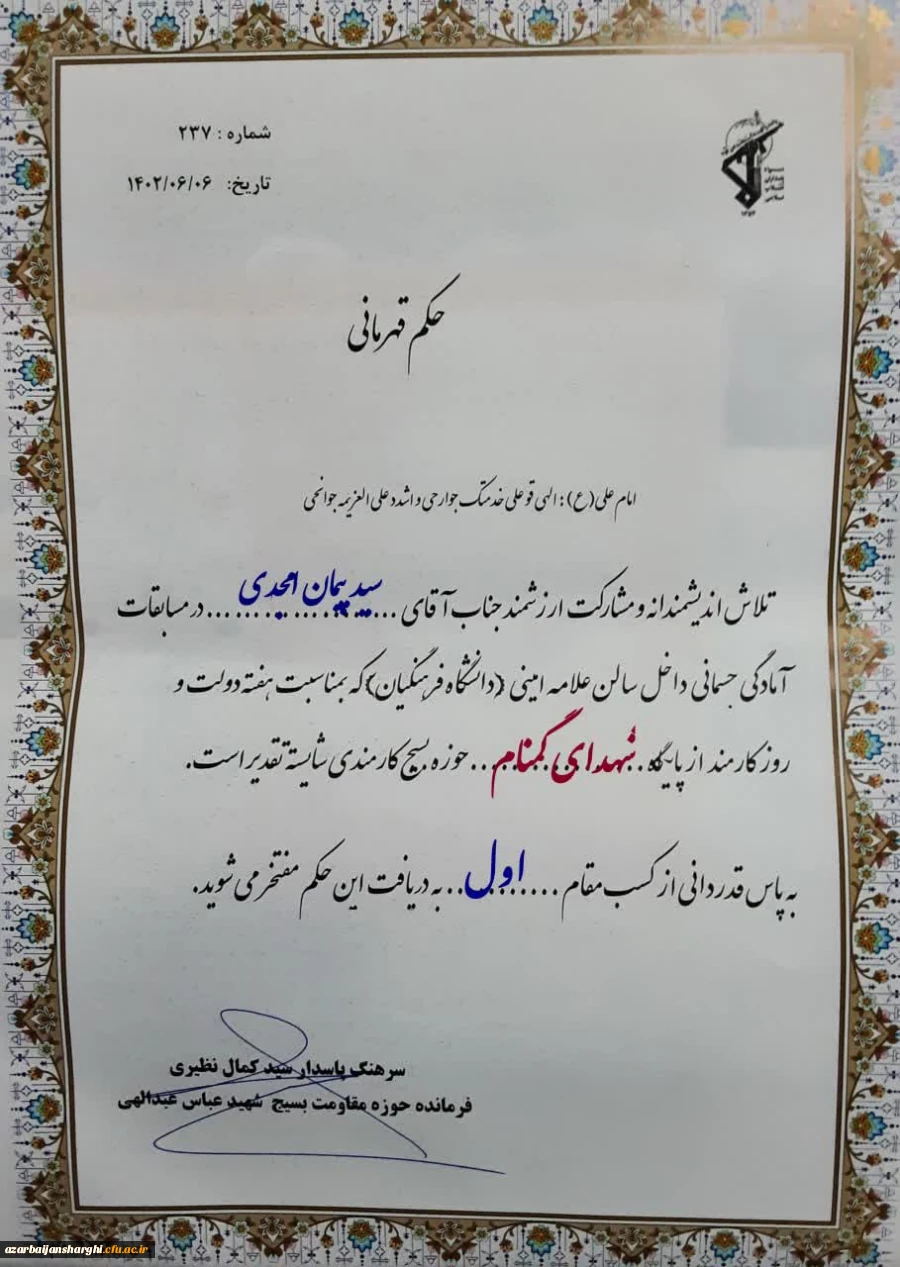 شماره : ۲۳۷
تاریخ: ۱۴۰۲/۰۶/۰۶
حکم قهرمانی
امام علی (ع) : الهی قو علی خدمتک جوارحی و اشدد علی العزیمه جوانحی
تلاش اندیشمندانه و مشارکت ارزشمند جناب آقای سید پیمان امجدی در مسابقات
آمادگی جسمانی داخل سالن علامه امینی (دانشگاه فرهنگیان) که بمناسبت هفته دولت و
روز کارمند از پایگاه شهدای گمنام حوزه بسیج کارمندی شایسته تقدیر است.
به پاس قدردانی از کسب مقام اول به دریافت این حکم مفتخر می شوید.
سرهنگ پاسدار سید کمال نظیری
فرمانده حوزه مقاومت بسیج شهید عباس عبدالهی
azarbaijansharghi.cfu.ac.ir